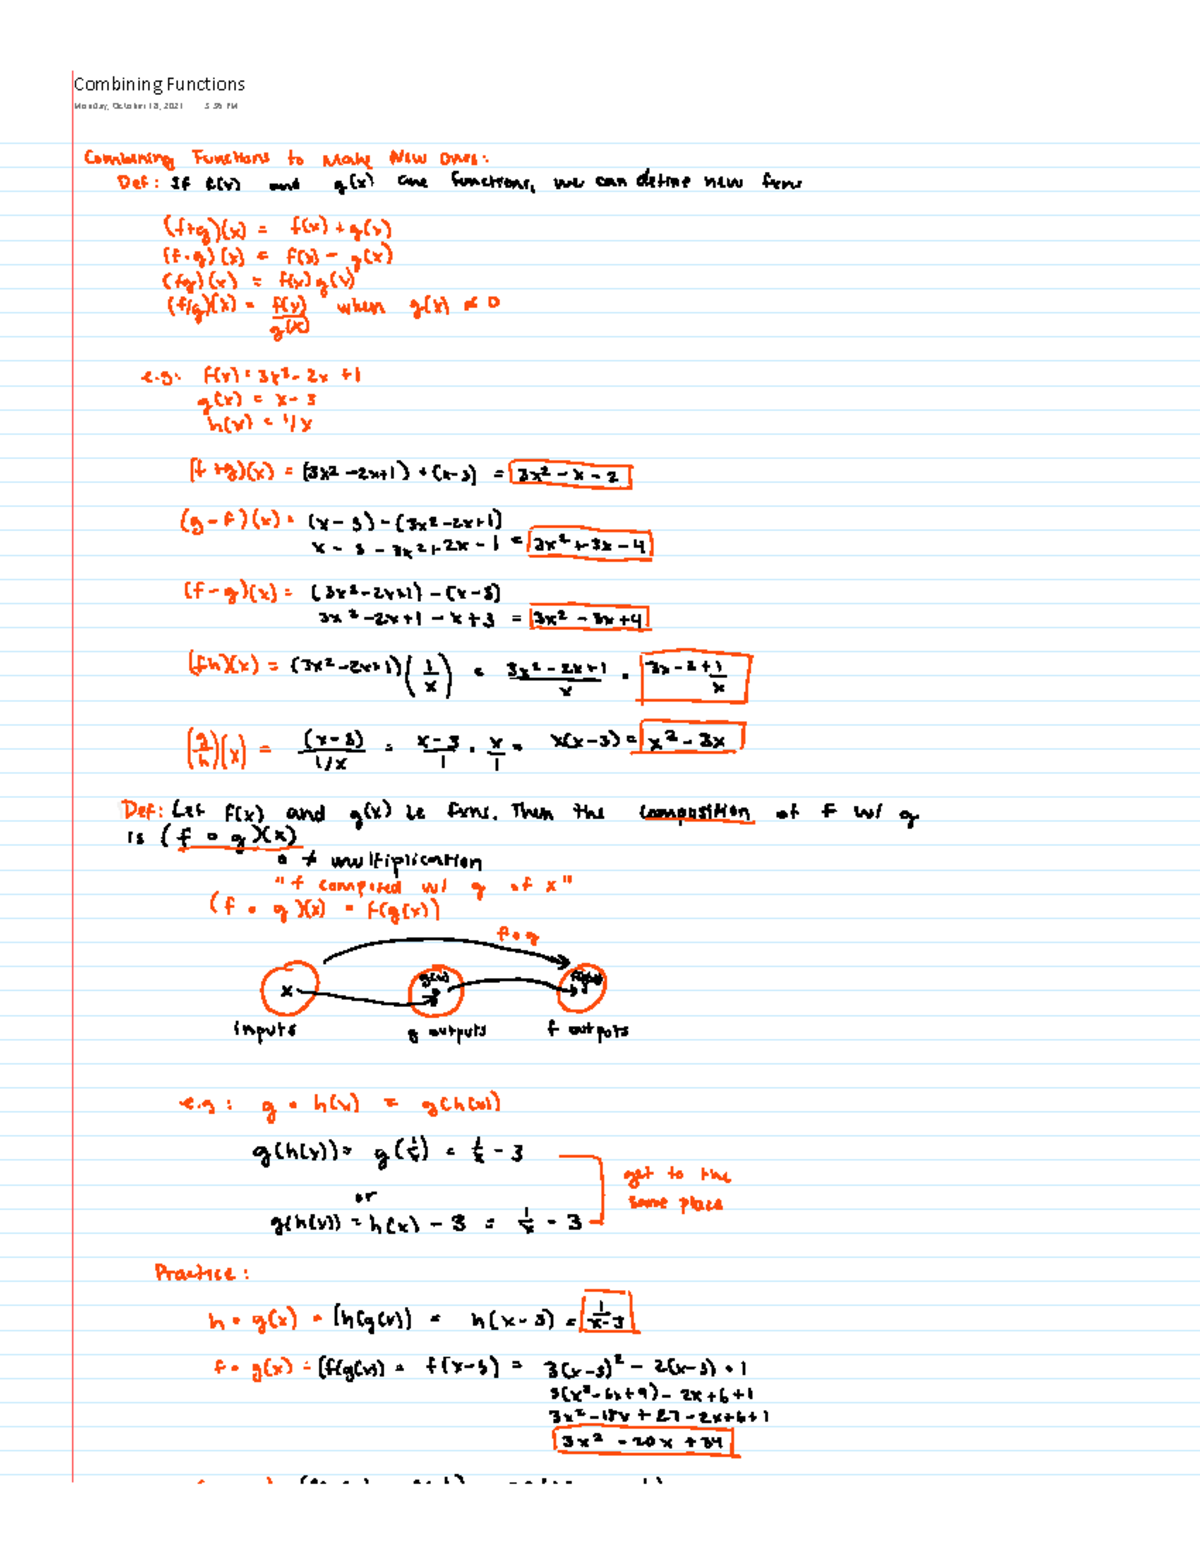 Combining Functions
Monday, October 18, 2021
Combining Functions to Make New Ones:
Def: If f(x) and g(x) are functions, we can define new fxns
(f+g)(x) = f(x) + g(x)
(f-g)(x) = f(x) - g(x)
(fg)(x) = f(x)g(x)
(f/g)(x) = f(x)/g(x) when g(x) ≠ 0
e.g: f(x) = 3x² - 2x + 1
g(x) = x - 3
h(x) = 1/x
(f+g)(x) = (3x² - 2x+1) + (x-3) = 3x² - x - 2
(g-f)(x) = (x-3) - (3x² - 2x+1)
x - 3 - 3x² + 2x - 1 = 3x² + 3x - 4
(f-g)(x) = (3x² - 2x+1) - (x-3)
3x² - 2x + 1 - x + 3 = 3x² - 3x + 4
(fh)(x) = (3x² - 2x+1)(1/x) = 3x² - 2x+1/x = 3x - 2 + 1/x
(g/h)(x) = (x-3)/1/x = x-3/1 · x/1 = x(x-3) = x² - 3x
Def: Let f(x) and g(x) be fxns. Then the composition of f w/ g
is (f ∘ g)(x)
∘ ≠ multiplication
"f composed w/ g of x"
(f ∘ g)(x) = f(g(x))
f∘g
x g(x)
inputs g outputs f outputs
e.g: g ∘ h(x) = g(h(x))
g(h(x)) = g(1/x) = 1/x - 3
or
get to the
same place
g(h(x)) = h(x) - 3 = 1/x - 3
Practice:
h ∘ g(x) = (h(g(x)) = h(x-3) = 1/x-3
f ∘ g(x) = (f(g(x)) = f(x-3) = 3(x-3)² - 2(x-3) + 1
3(x² - 6x + 9) - 2x + 6 + 1
3x² - 18x + 27 - 2x + 6 + 1
3x² - 20x + 34